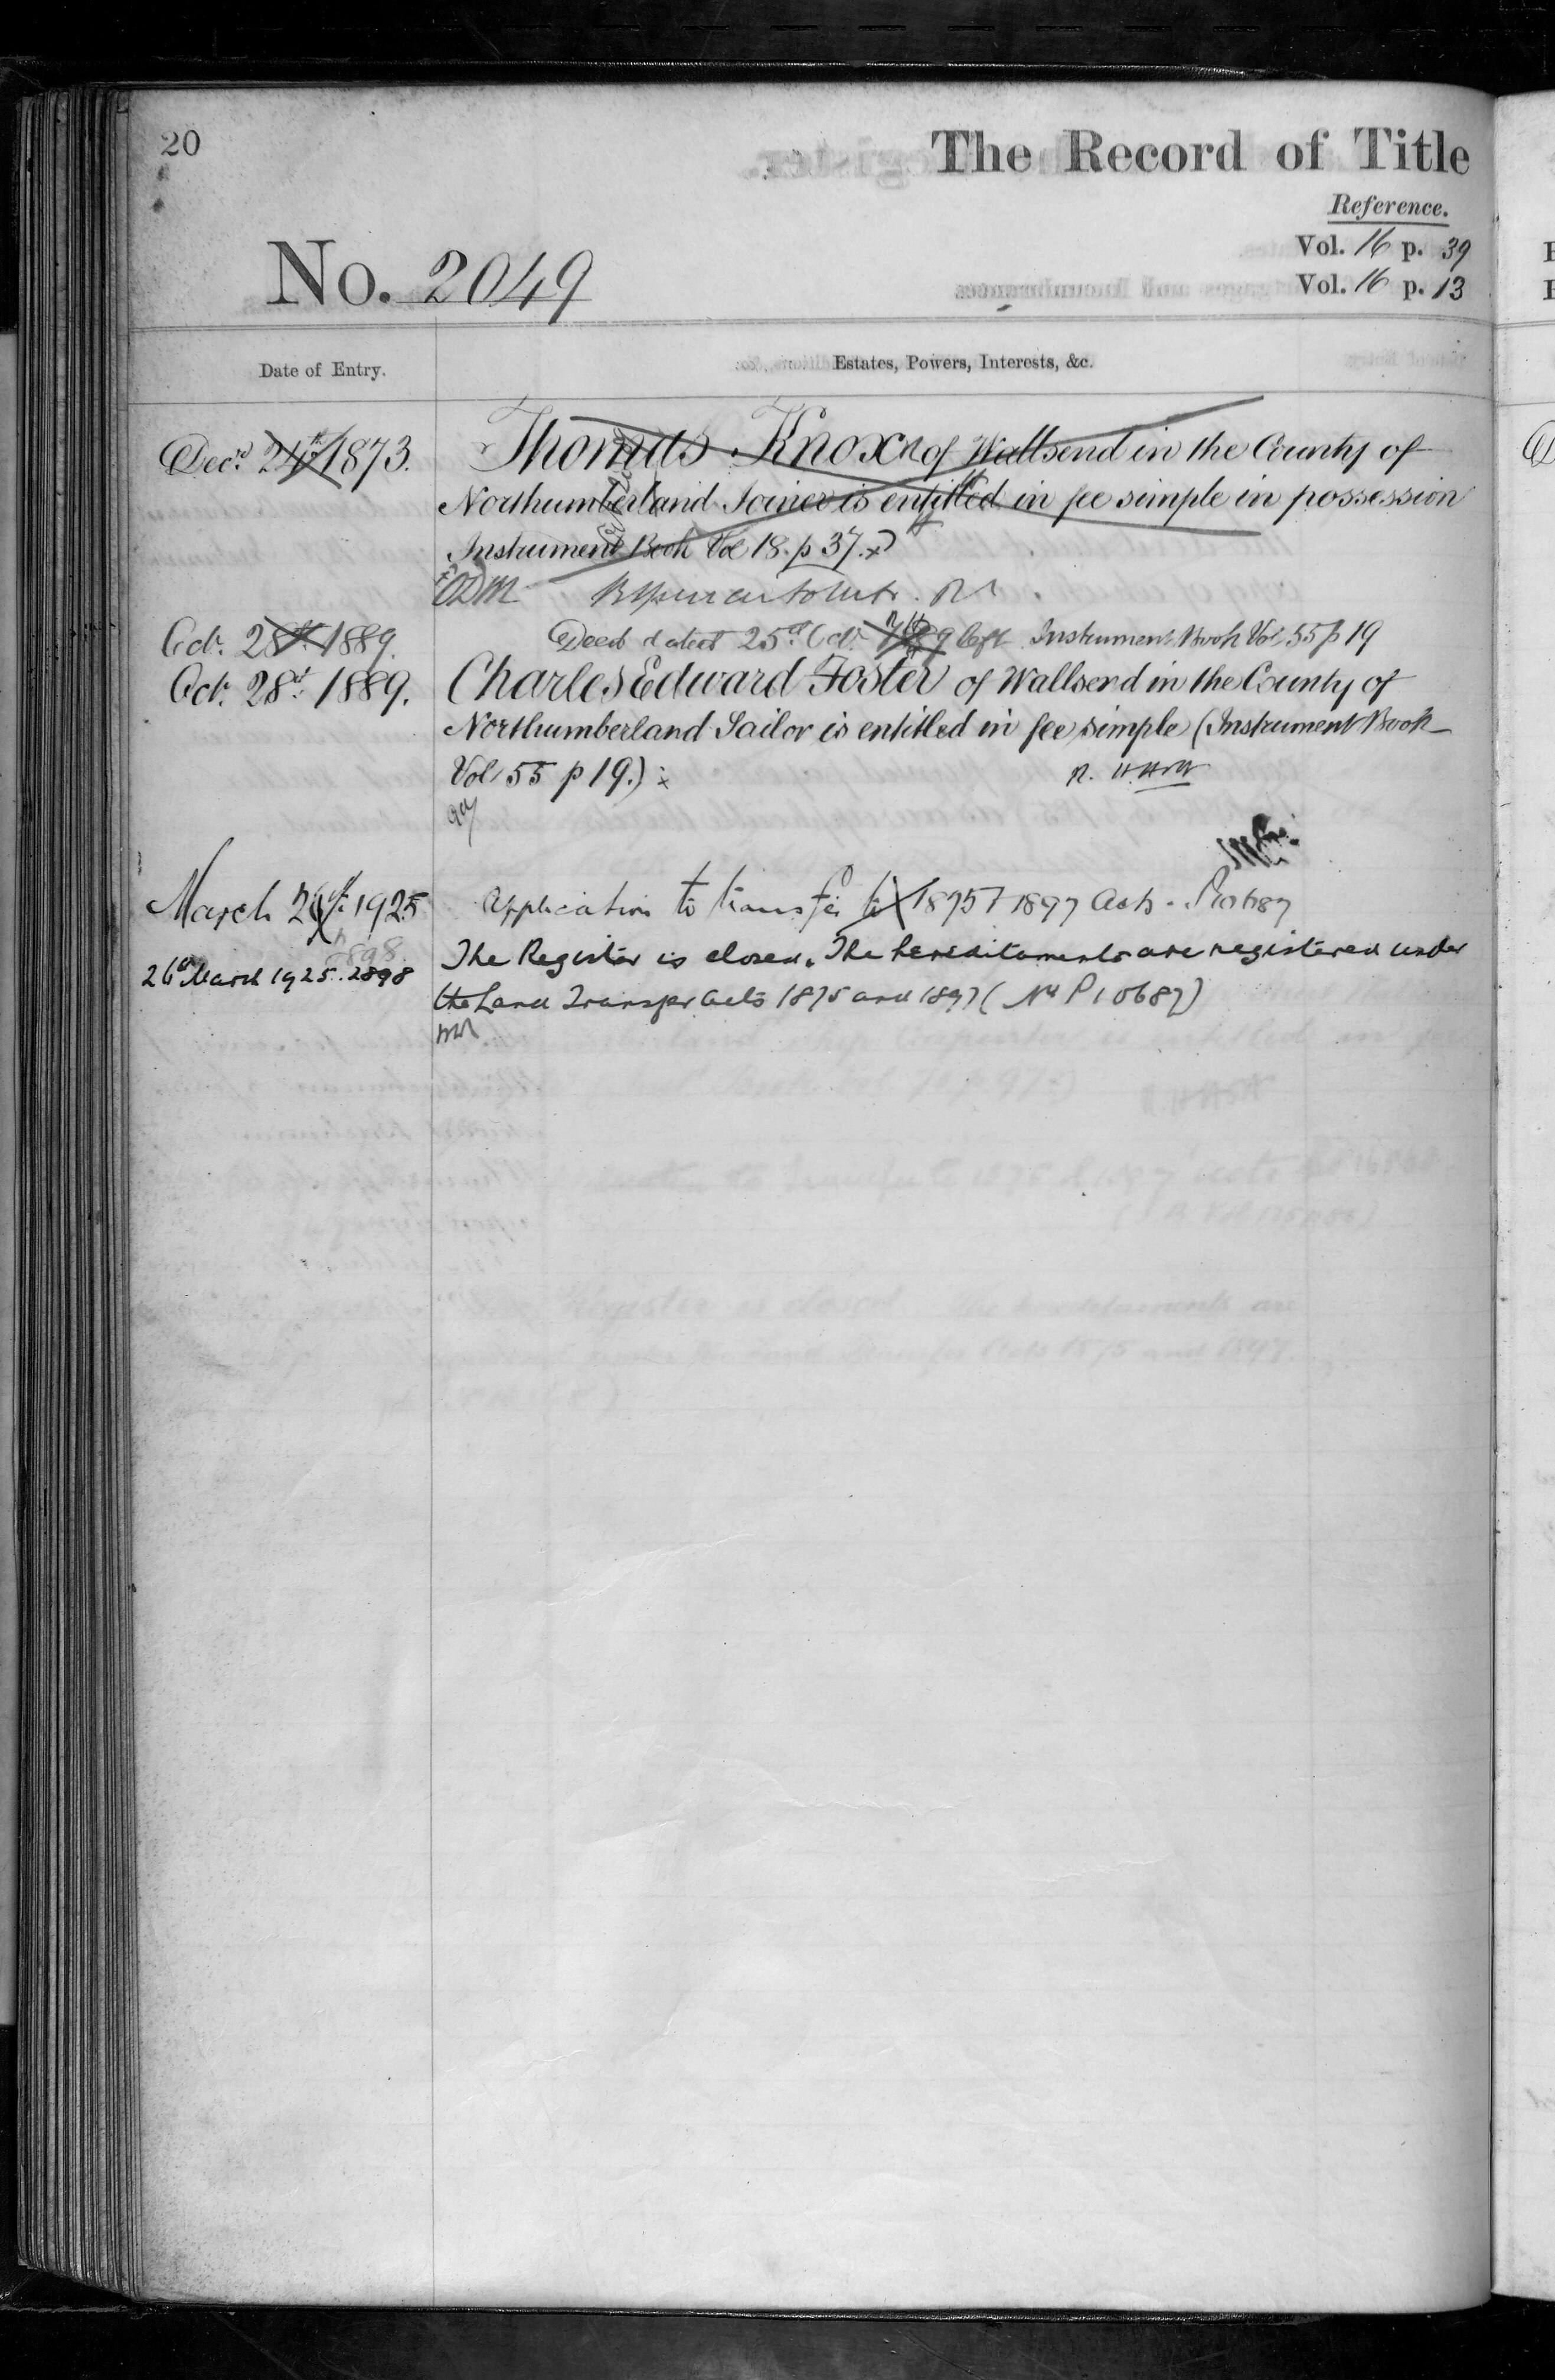 20
The Record of Title
Reference.
Vol. 16 p. 39
No. 2049
Vol. 16 p. 13
Date of Entry.
Estates, Powers, Interests, &c.
Decr. 24th 1873.
Thomas Knox of Wallsend in the County of
Northumberland Joiner is entitled in fee simple in possession
Instrument Book Vol 18. p 37.
Oct. 28th 1889.
Deed dated 25th Oct. 1889 left Instrument Book Vol 55 p 19
Oct. 28th 1889.
Charles Edward Foster of Wallsend in the County of
Northumberland Sailor is entitled in fee simple (Instrument Book
Vol 55 p 19.)
March 1925
Application to transfer to 1875 & 1897 Acts - P10687
26th March 1925. 2898
The Register is closed. The hereditaments are registered under
the Land Transfer Acts 1875 and 1897 (No P10687)